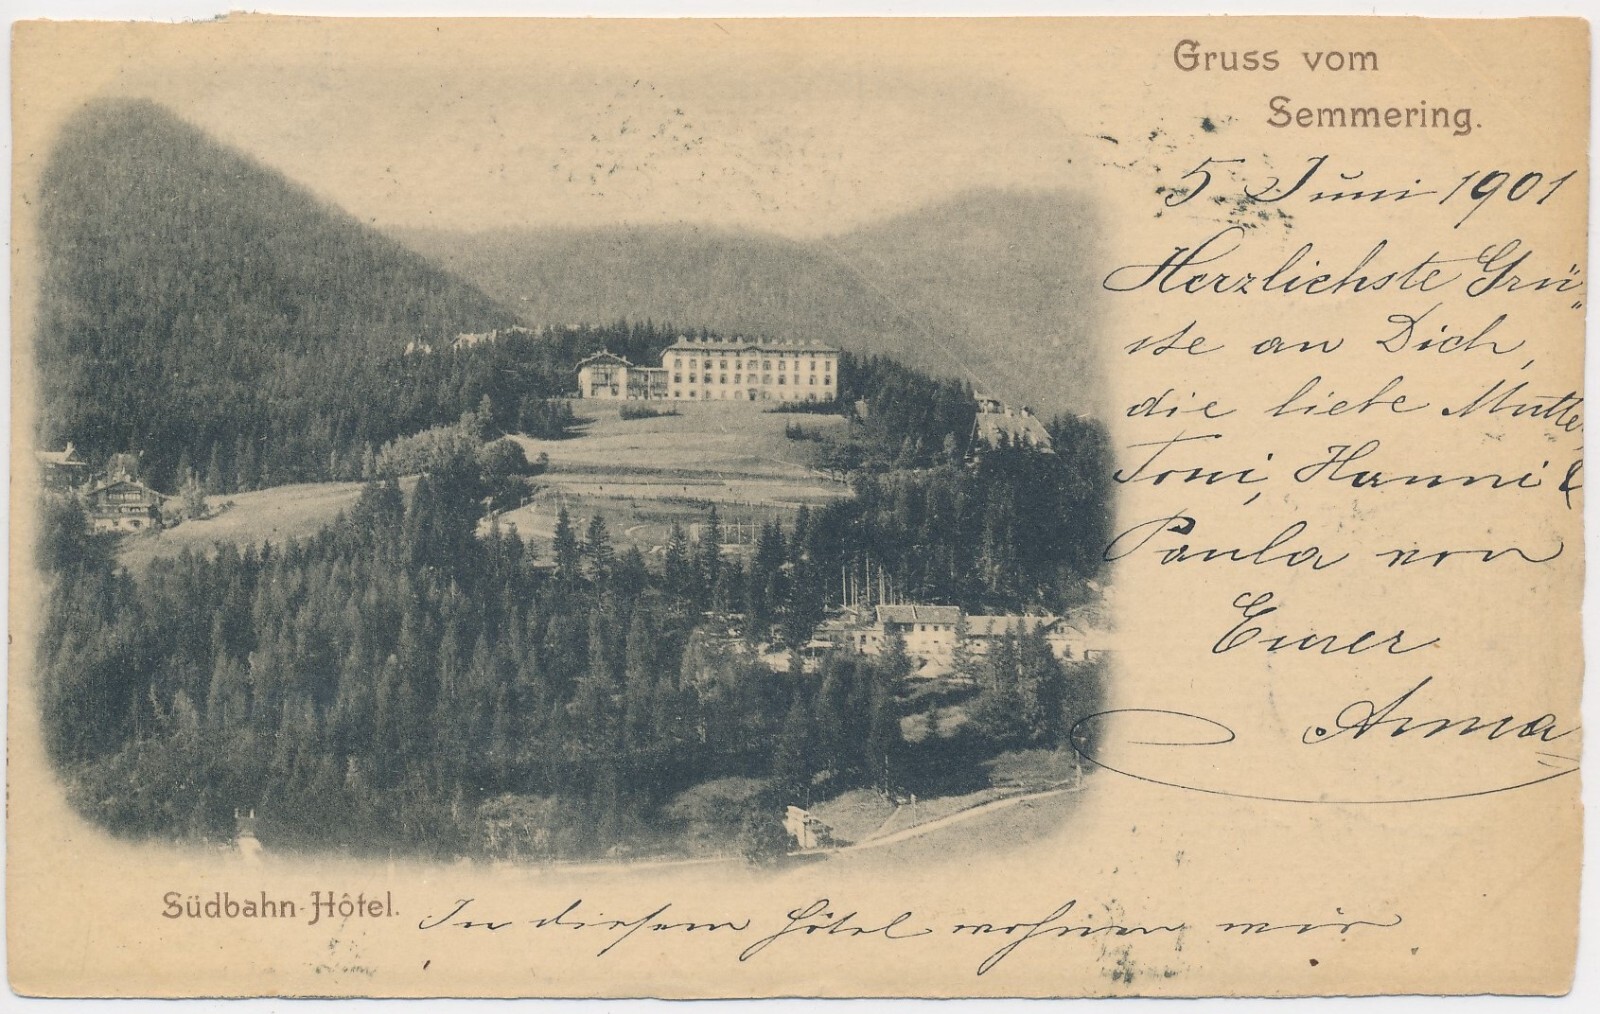 Gruss vom
Semmering.
5 Juni 1901
Herzlichste Grü„
ste an Dich,
die liebe Mutter
Toni, Hanni &
Paula von
Eurer
Anna
Südbahn-Hôtel.
In diesem Hôtel wohnen wir